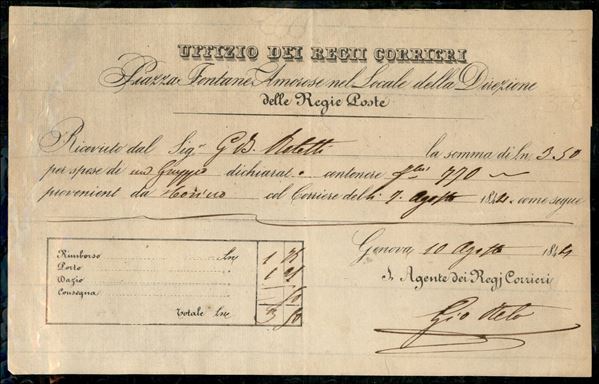 UFFIZIO DEI REGII CORRIERI
Piazza Fontane Amorose nel Locale della Direzione
delle Regie Poste
Ricevuto dal Sig.r G B. la somma di Ln. 3.50
per spese di un Gruppo dichiarato contenere 770
provenient da Torino col Corriere delli 7 Agosto 184 come segue
Genova 10 Agosto 184
Rimborso Ln. 1
Porto 1
Dazio
Consegna
Totale Ln. 3 50
L'Agente dei Regj Corrieri
Gio